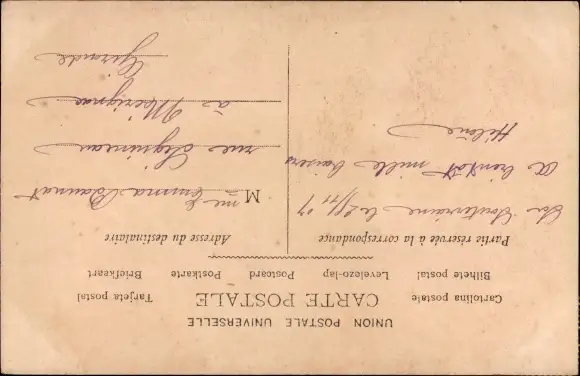 UNION POSTALE UNIVERSELLE
CARTE POSTALE
Cartolina postale
Tarjeta postal
Bilhete postal
Levelezo-lap
Postcard
Postkarte
Briefkaart
Partie réservée à la correspondance
La Souterraine le
A bientôt mille baisers
Hélène
Adresse du destinataire
M me Emma
rue
à Mérignac
Gironde